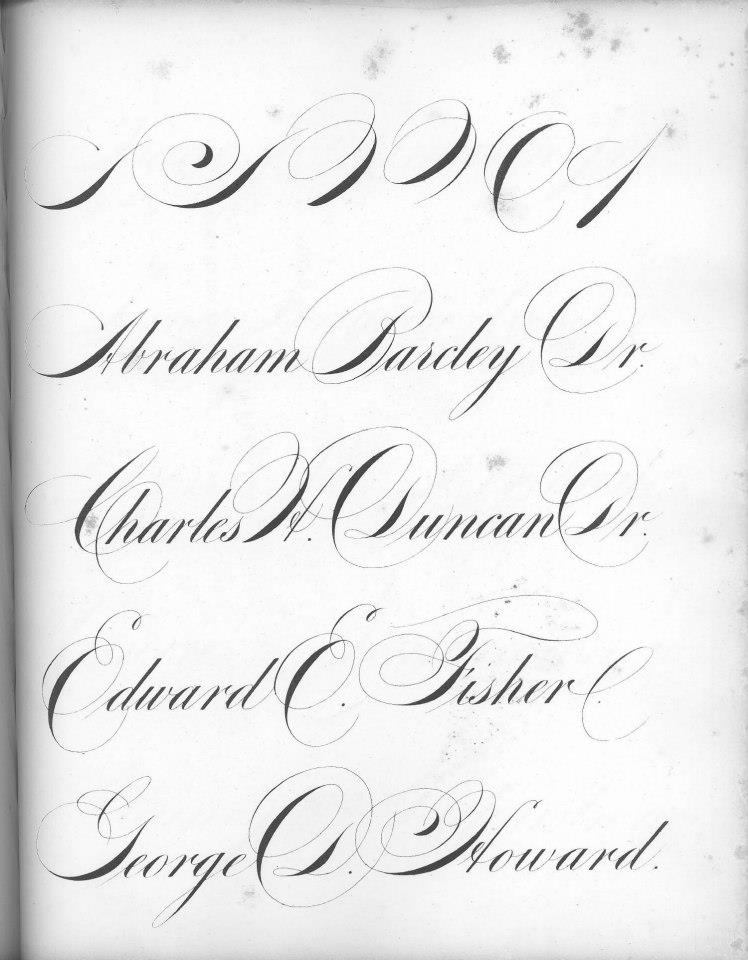 Abraham Barcley Dr.
Charles H. Duncan Dr.
Edward E. Fisher
George D. Howard.